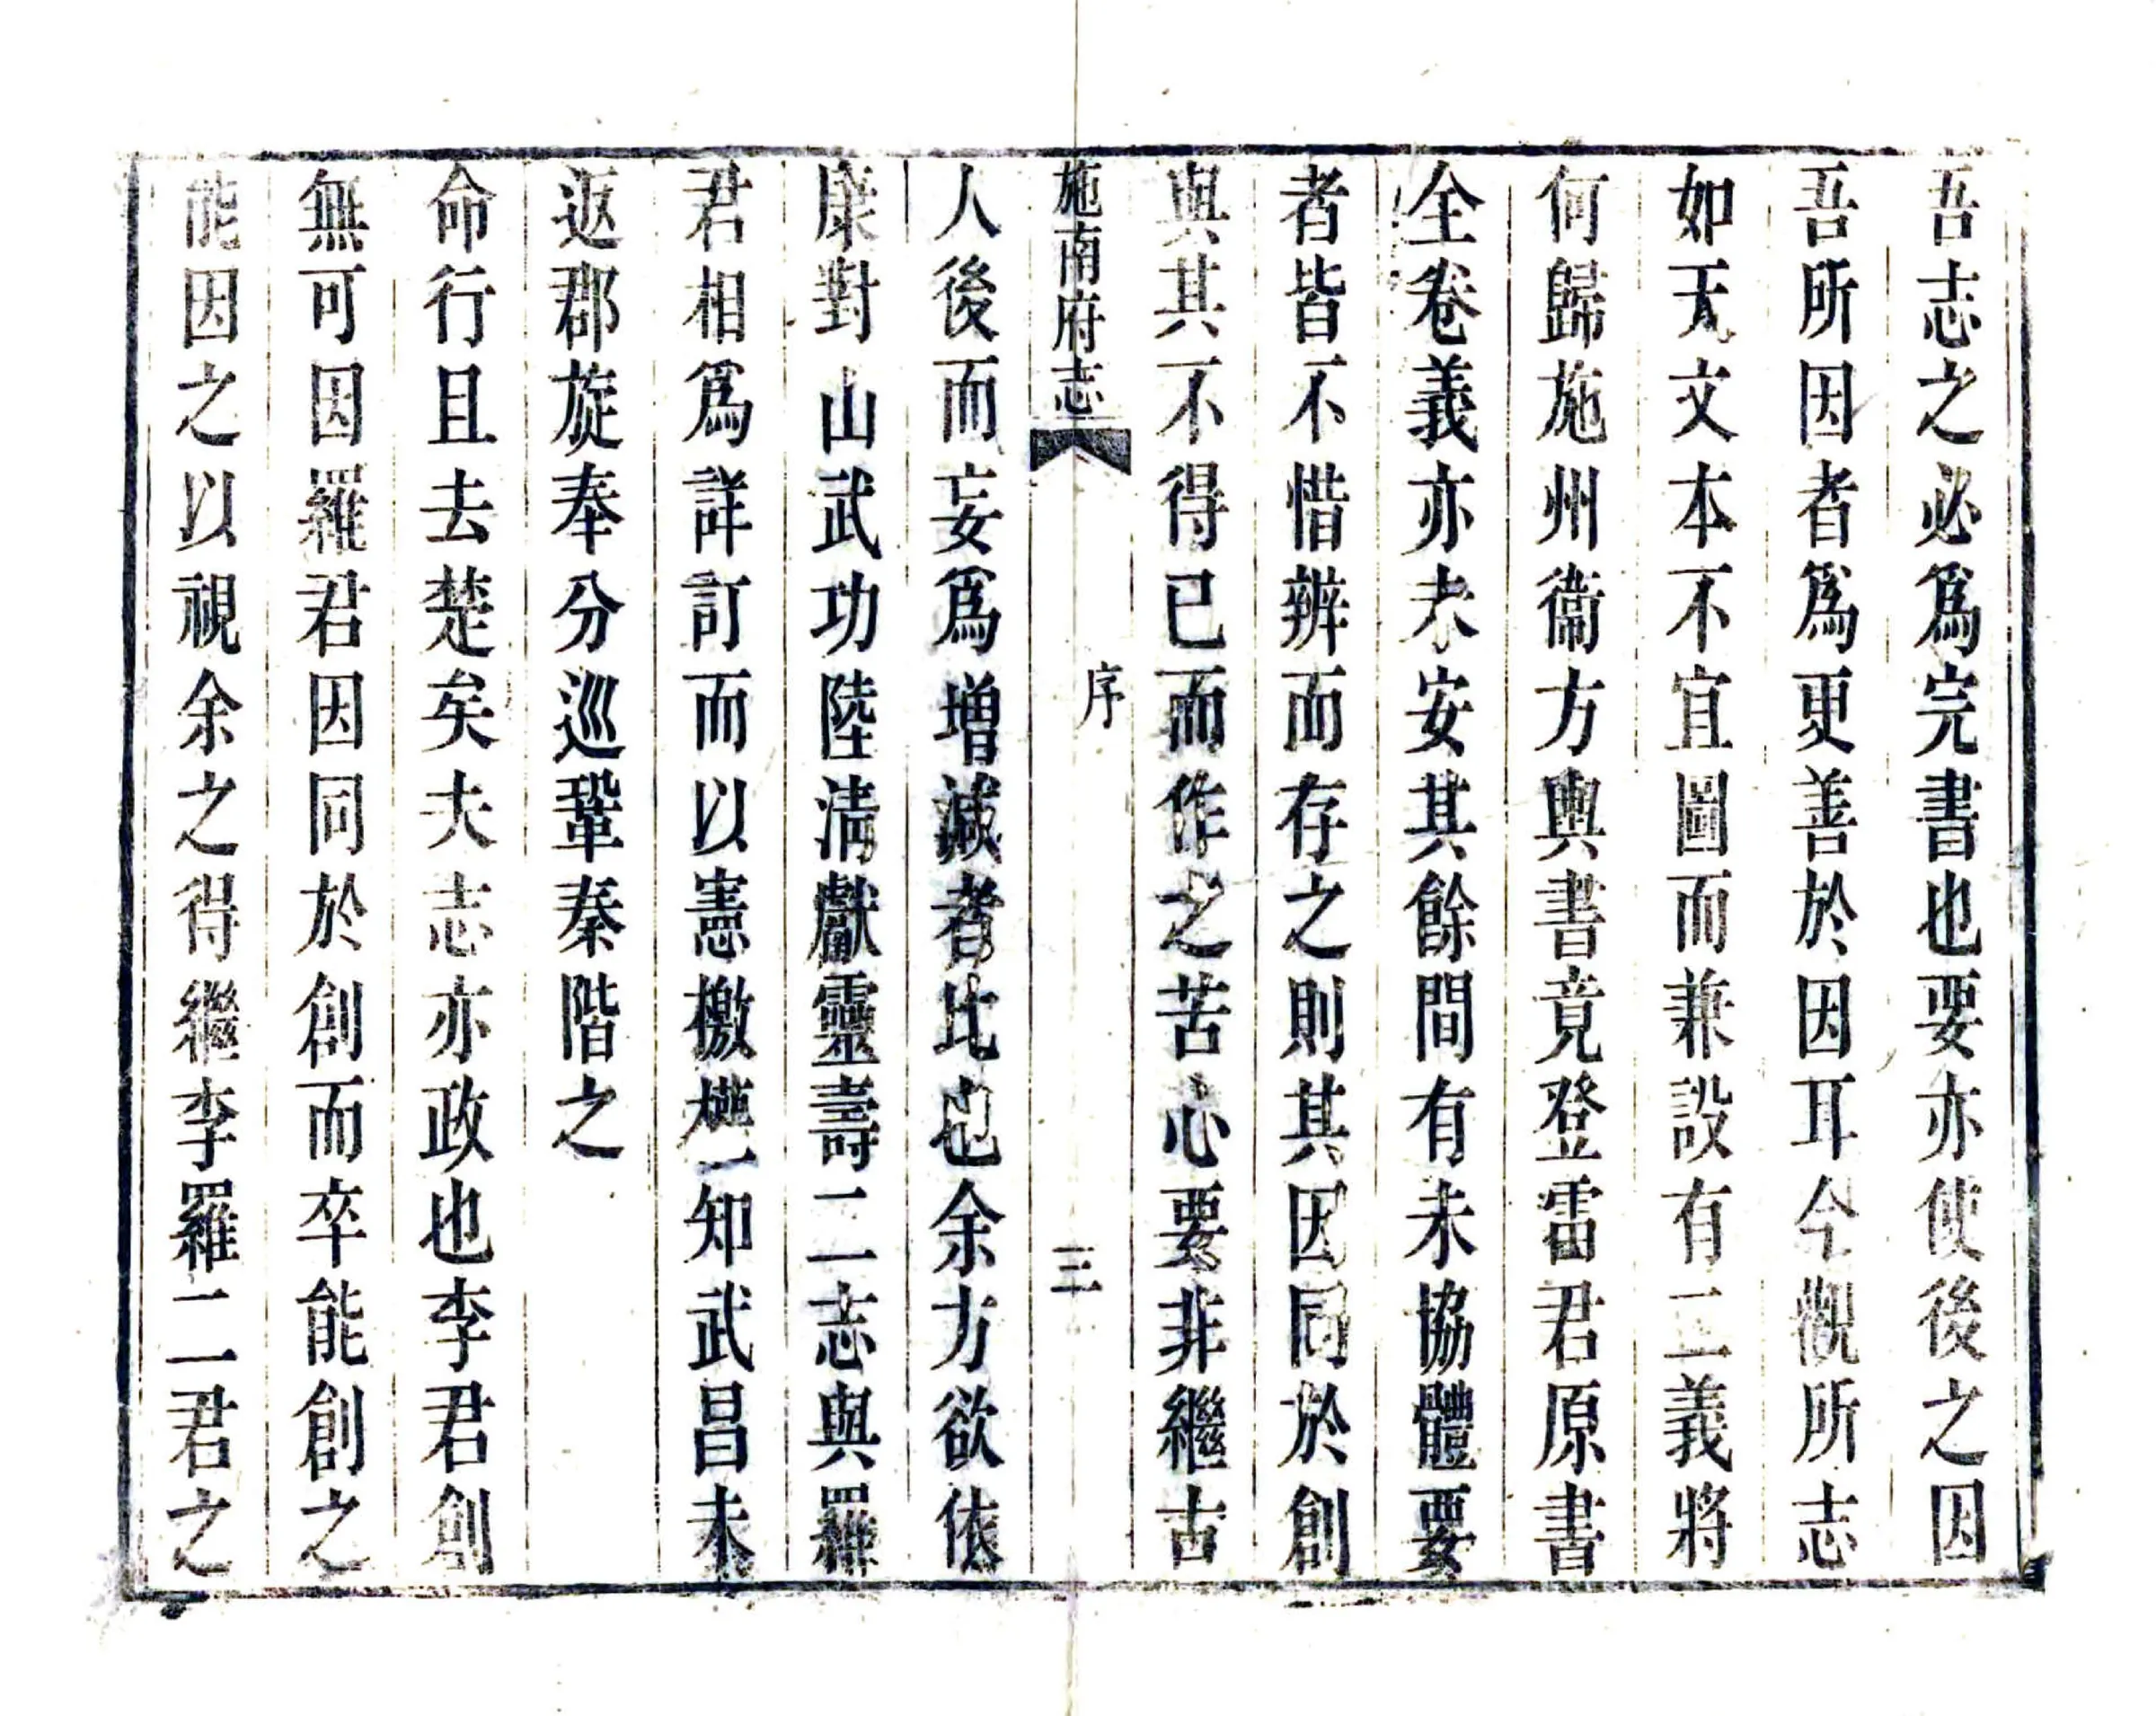 吾志之必爲完書也要亦使後之因
吾所因者爲更善於因耳今觀所志
如天文本不宜圖而兼設有二義將
何歸施州衞方輿書竟登雷君原書
全卷義亦未安其餘間有未協體要
者皆不惜辨而存之則其因同於創
與其不得已而作之苦心要非繼古
施南府志
序
三
人後而妄爲增減者比也余方欲依
康對山武功陸淸獻靈壽二志與羅
君相爲詳訂而以憲檄權知武昌未
返郡旋奉分巡鞏秦階之
命行且去楚矣夫志亦政也李君創
無可因羅君因同於創而卒能創之
能因之以視余之得繼李羅二君之